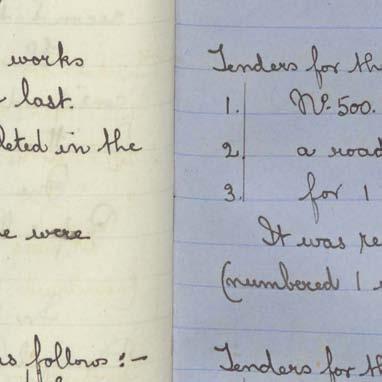 works
last.
leted in the
were
s follows :-
Tenders for the
1. No. 500.
2. a road
3. for 1
It was re
(numbered 1
Tenders for th